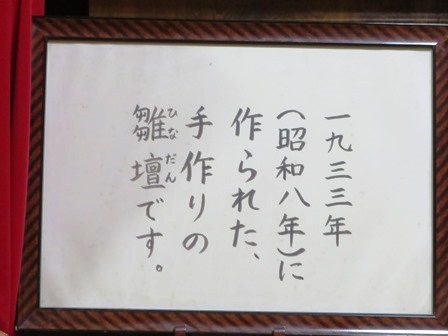 一九三三年
（昭和八年）に
作られた、
手作りの
雛壇です。
ひな
だん